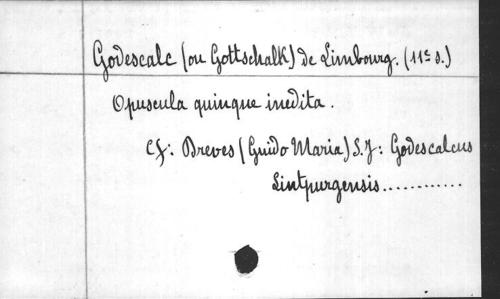 Godescalc (ou Gottschalk) de Limbourg. (11e s.)
Opuscula quinque inedita.
Cf: Dreves (Guido Maria) S.J: Godescalcus
Lintpurgensis.............